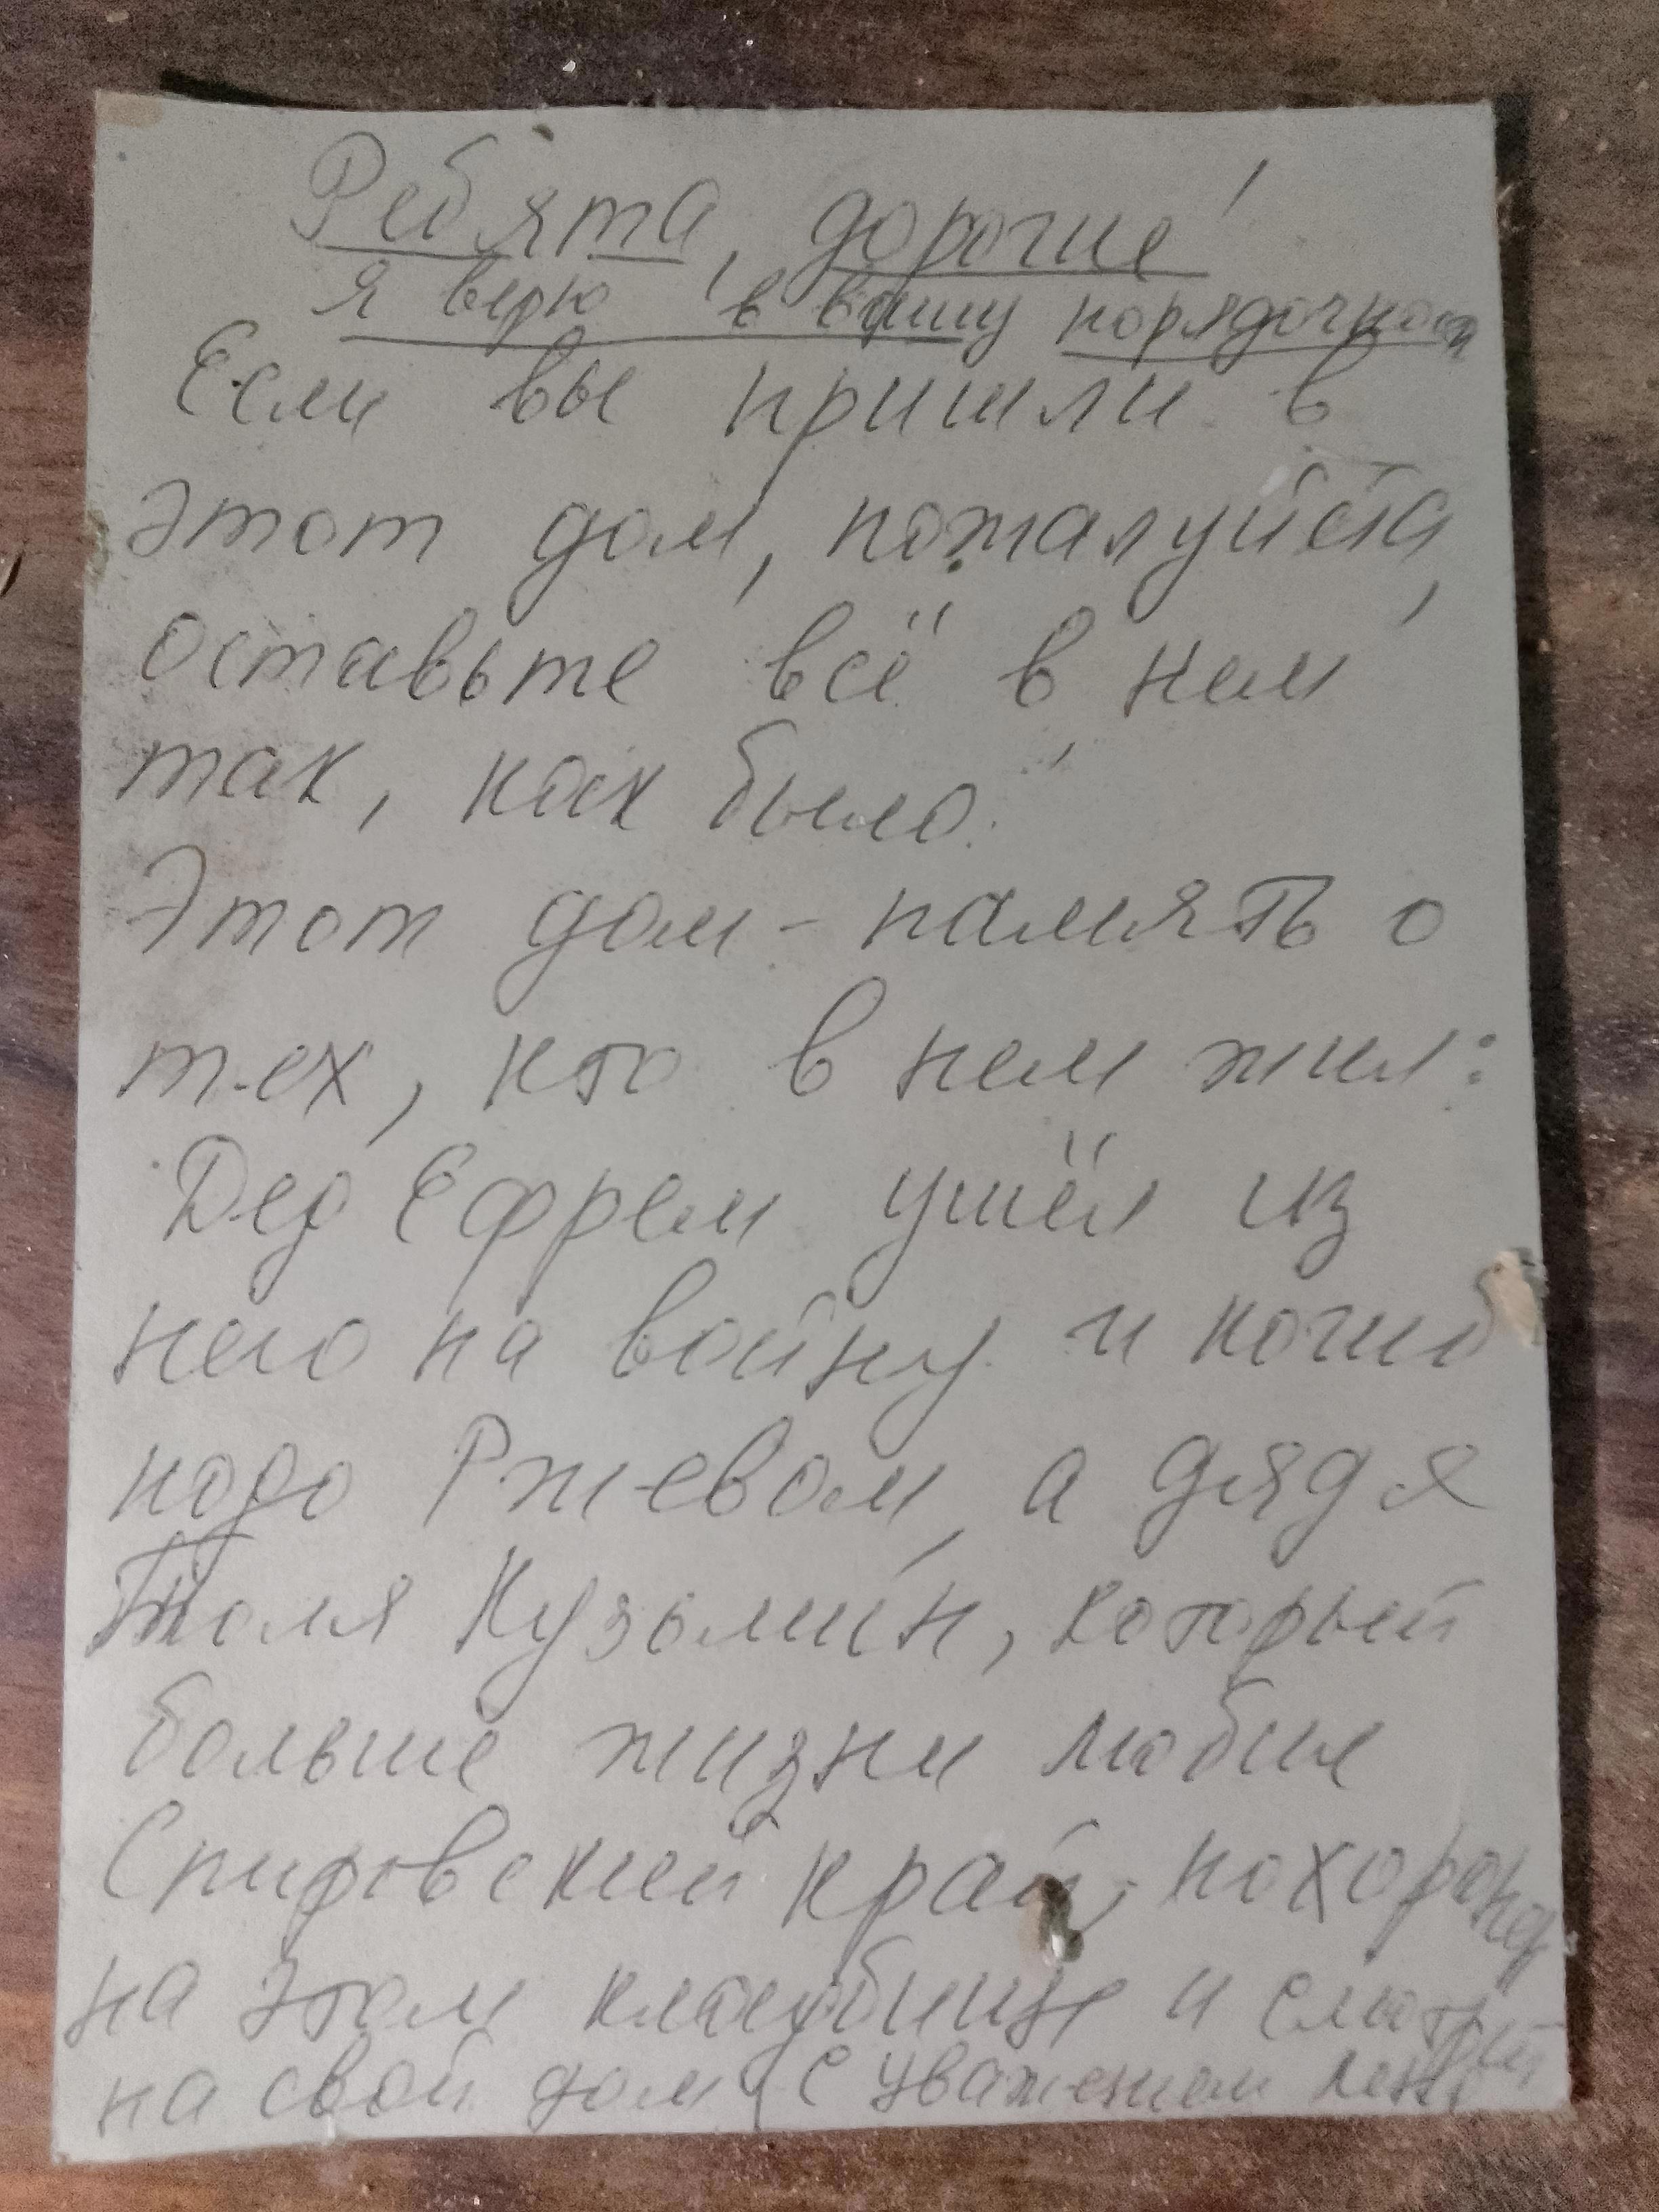 Ребята, дорогие!
я верю в вашу порядочность
Если вы пришли в
этот дом, пожалуйста,
оставьте всё в нем
так, как было!
Этот дом - память о
тех, кто в нем жил:
Дед Ефрем ушёл из
него на войну и погиб
подо Ржевом, а дядя
Толя Кузьмин, который
больше жизни любил
Спировский край, похоронен
на этом кладбище и смотрит
на свой дом С уважением Лена